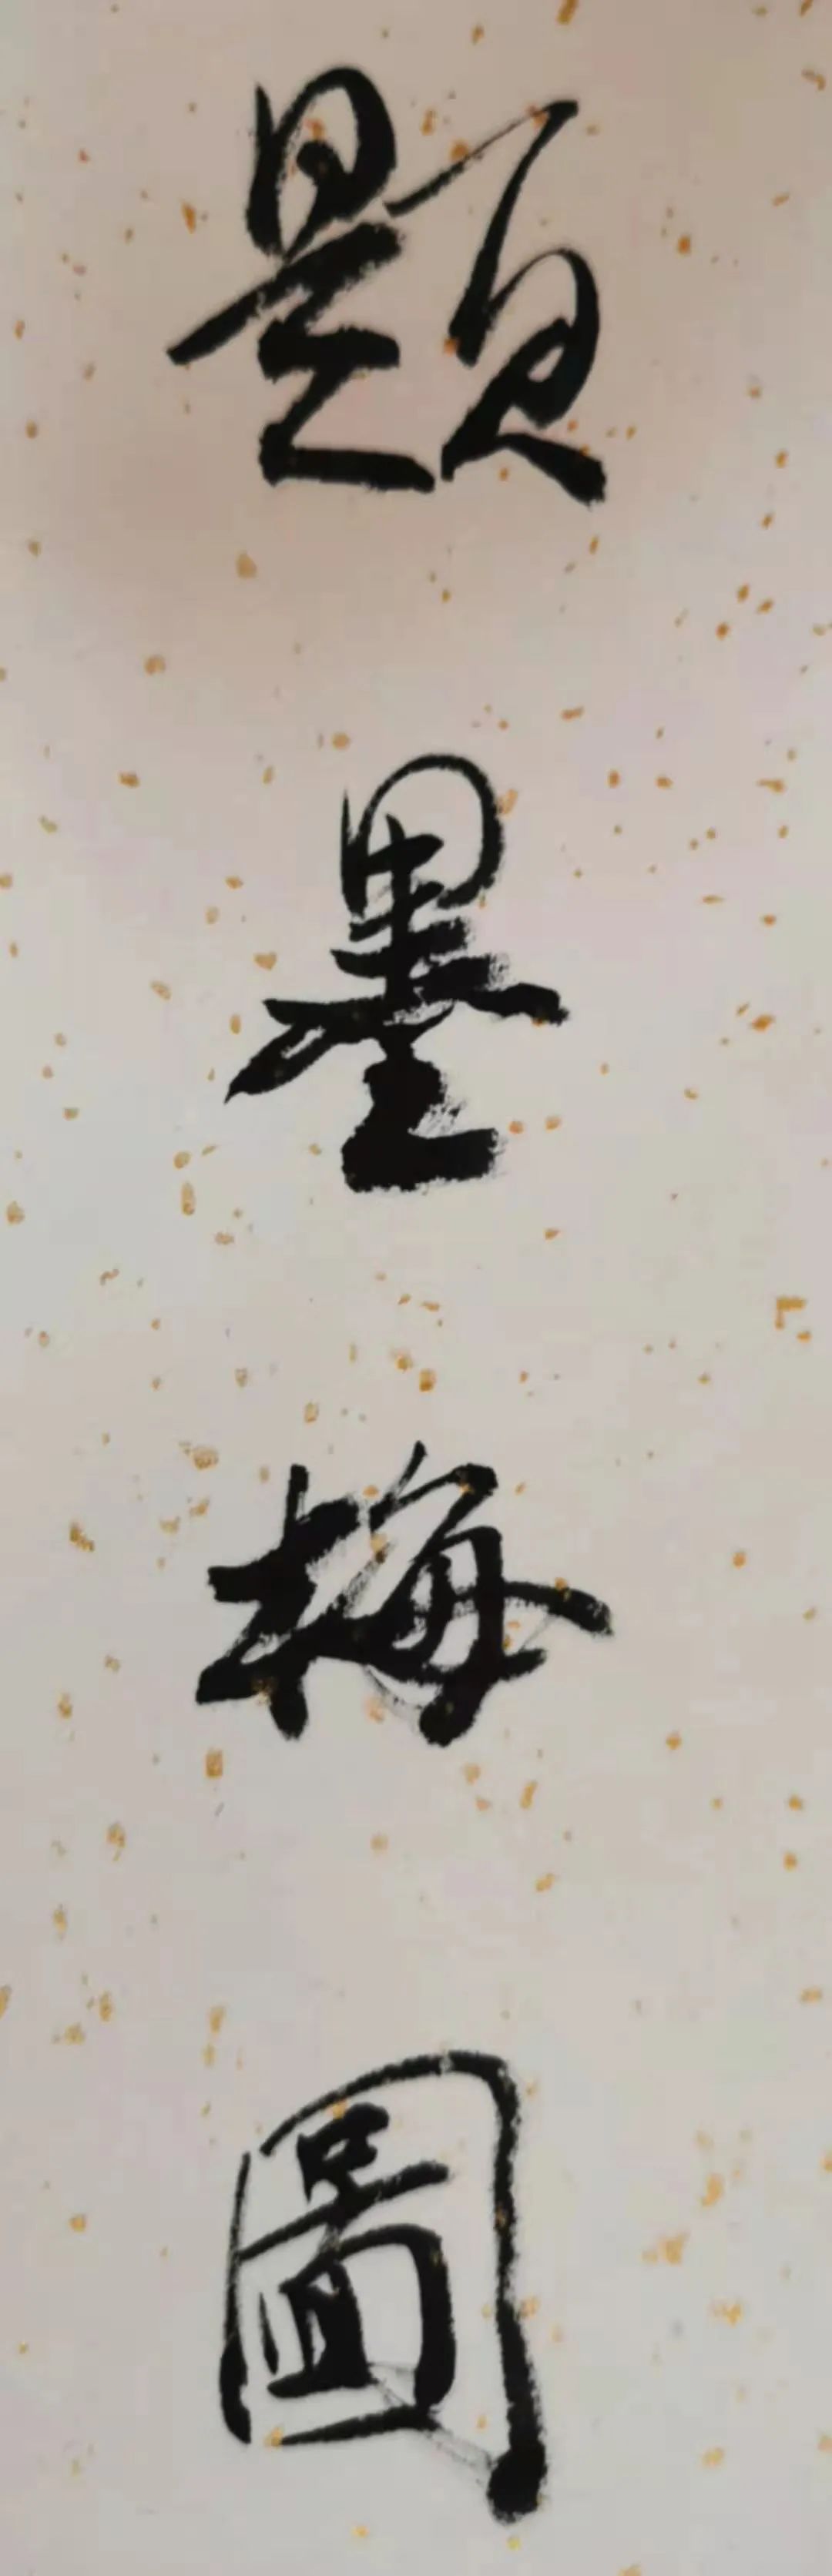 題墨梅圖